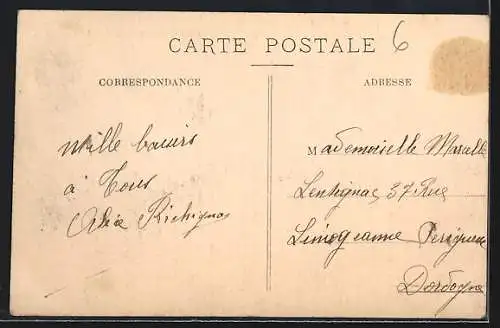 CARTE POSTALE 6
CORRESPONDANCE
Mille baisers
à Tous
ADRESSE
Mademoiselle Marcelle
37 Rue
Limogeanne Perigueux
Dordogne